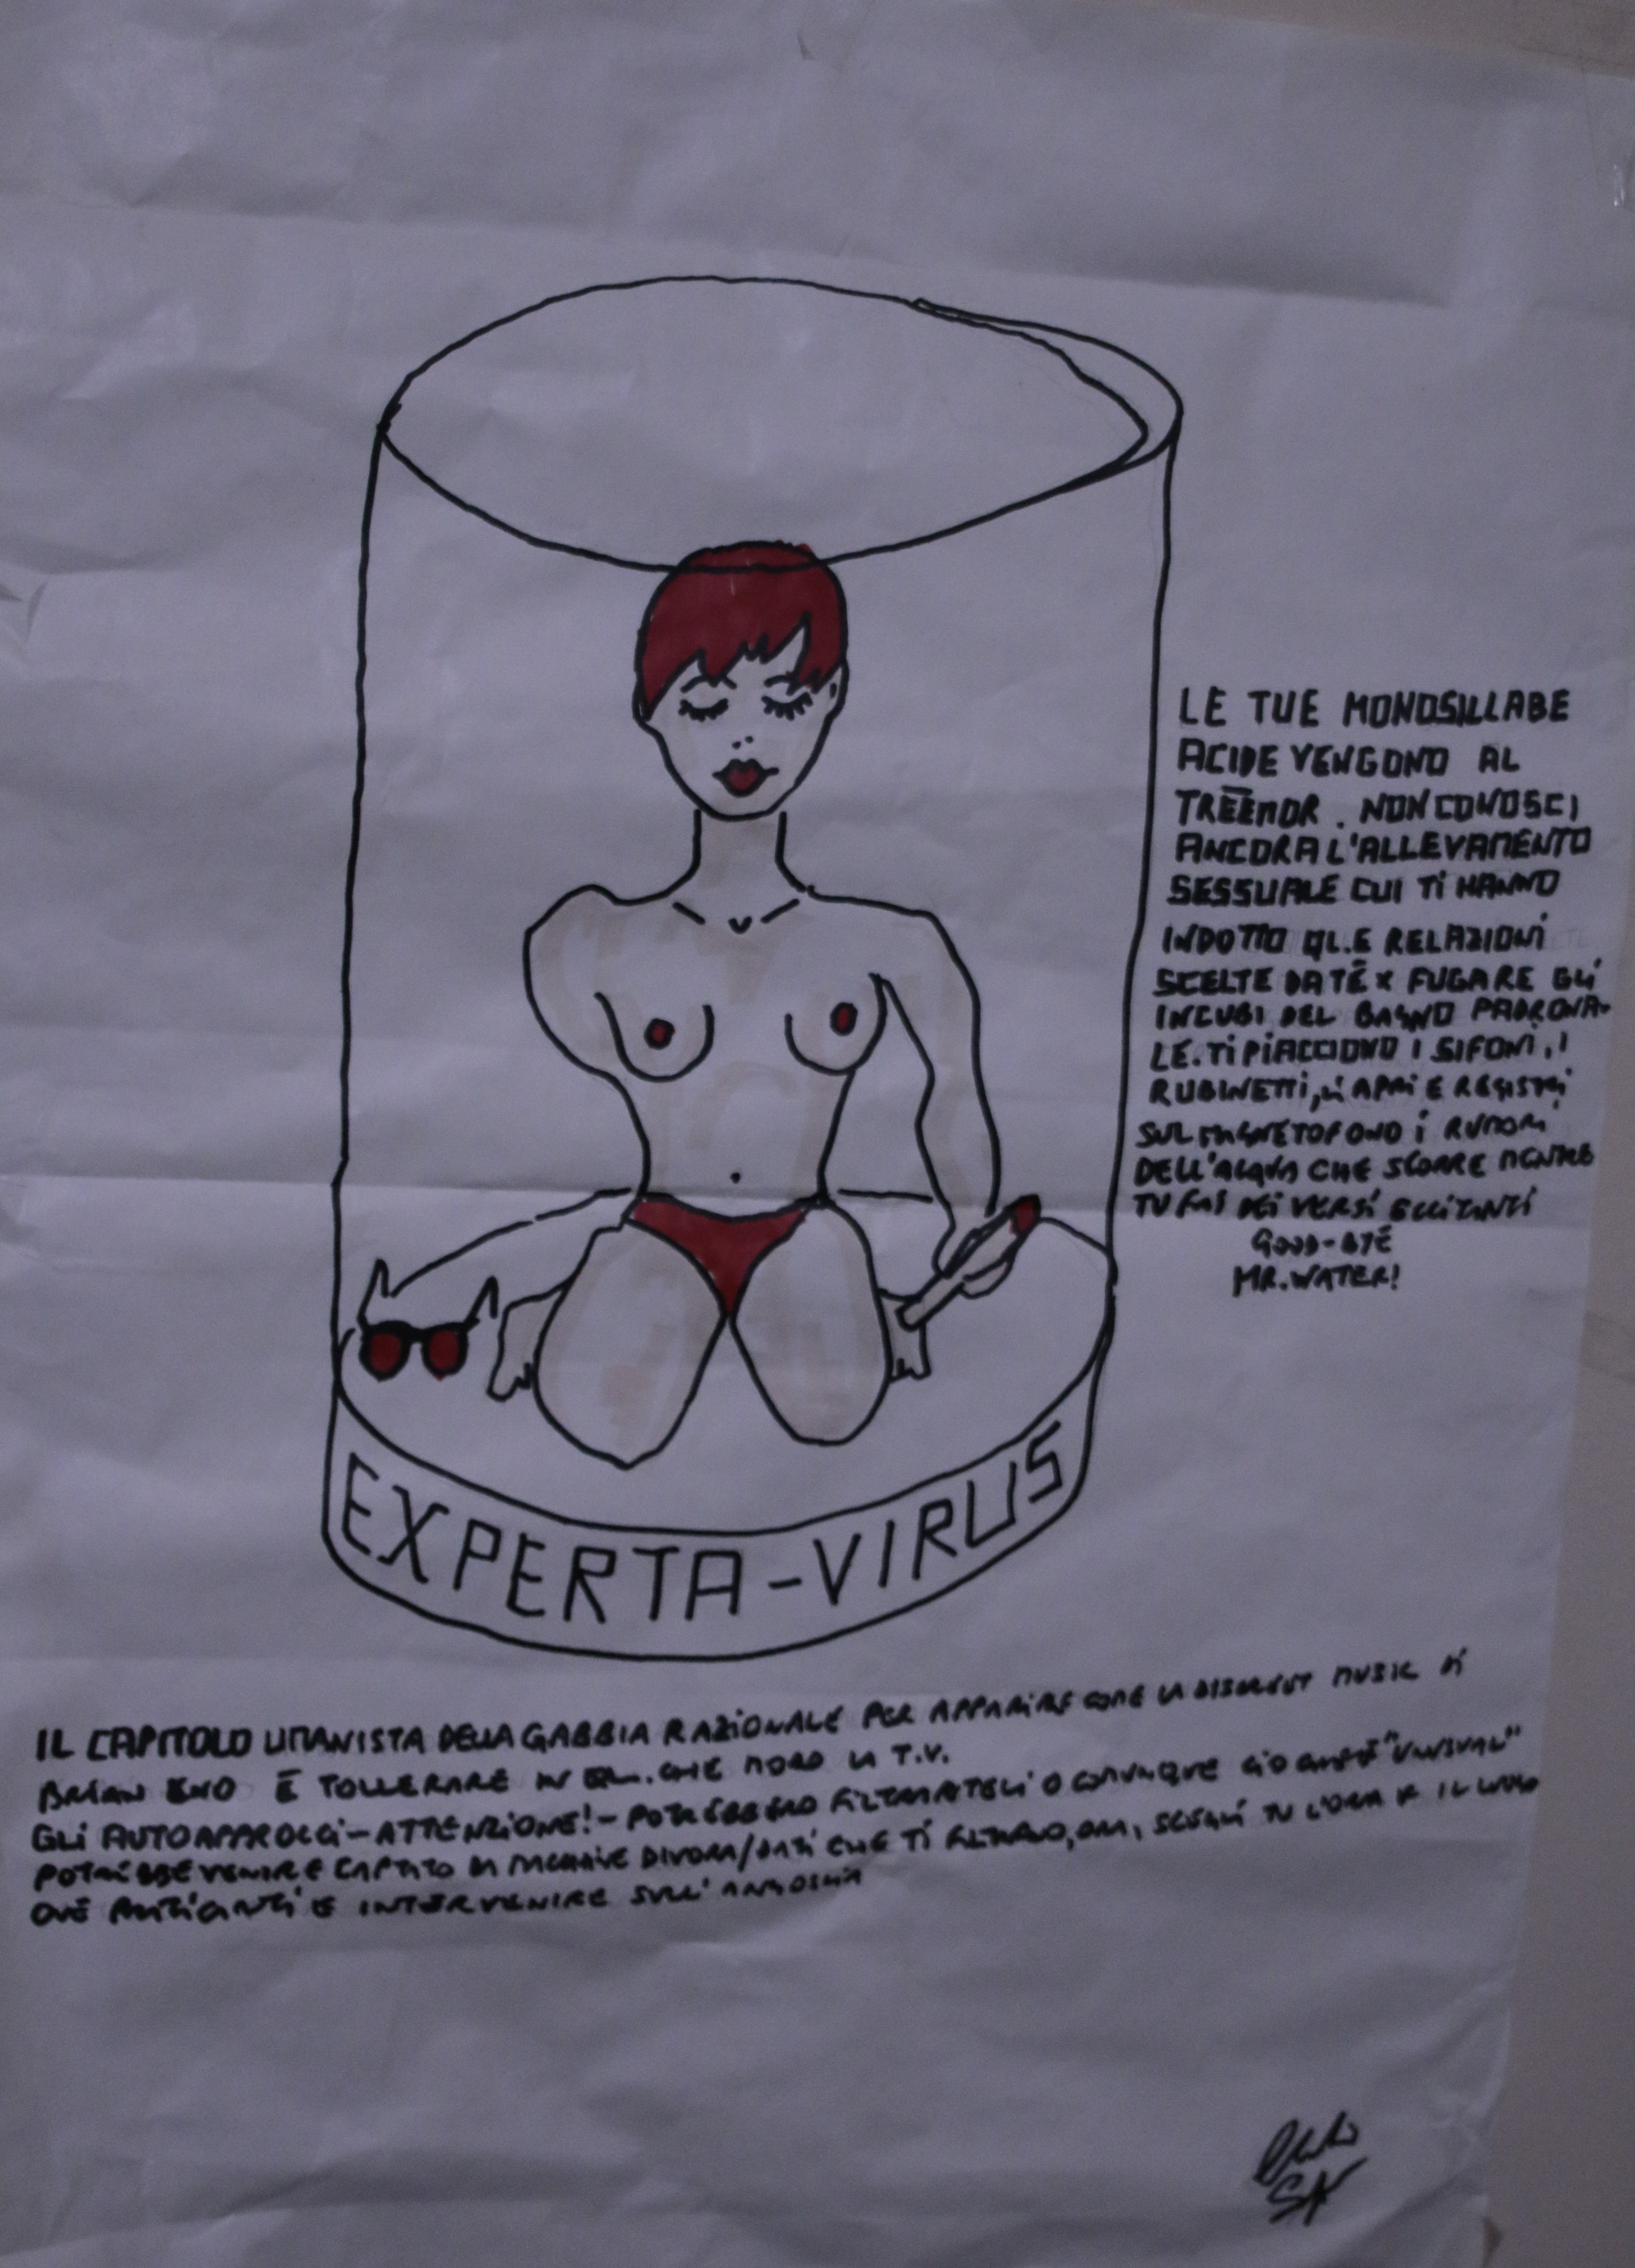 LE TUE MONOSILLABE
ACIDE VENGONO AL
TRĒĒMOR. NON CONOSCI
ANCORA L'ALLEVAMENTO
SESSUALE CUI TI HANNO
INDOTTO QL.E RELAZIONI
SCELTE DA TĒ X FUGARE GLI
INCUBI DEL BAGNO PADRONA-
LE. TI PIACCIONO I SIFONI, I
RUBINETTI, LI APRI E REGISTRI
SUL MAGNETOFONO I RUMORI
DELL'ACQUA CHE SCORRE MENTRE
TU FAI DEI VERSI ECCITANTI
GOOD-BYĒ
MR. WATER!
EXPERTA-VIRUS
IL CAPITOLO UMANISTA DELLA GABBIA RAZIONALE PER APPARIRE COME LA DISCREET MUSIC DI
BRIAN ENO Ē TOLLERARE IN CHE MODO LA T.V.
GLI AUTOAPPROCCI-ATTENZIONE!-POTREBBERO FILTRARTELI O COMUNQUE CIÒ "UNUSUAL"
POTREBBE VENIRE CAPTATO DA DIVORA/DATI CHE TI FILTRANO, ORA, SCEGLI TU L'ORA E IL LUOGO
E INTERVENIRE SULL'ANGOSCIA